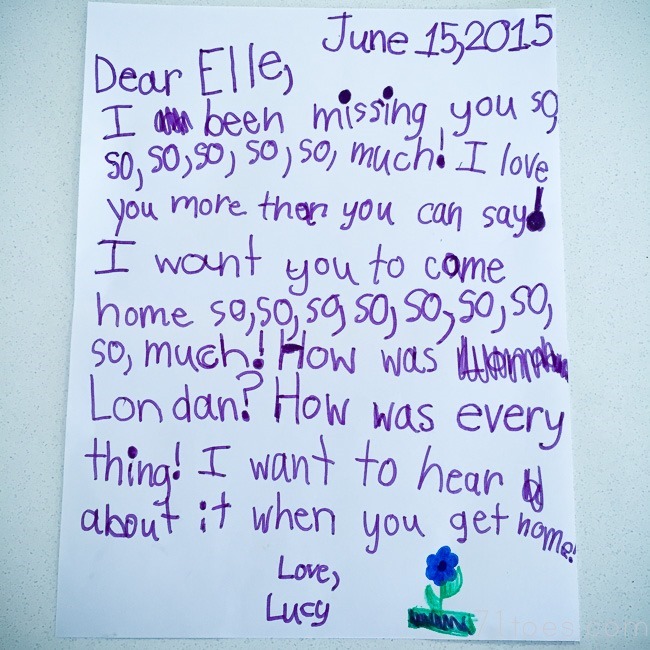 June 15,2015
Dear Elle,
I been missing you so,
so, so, so, so, so, much! I love
you more than you can say!
I want you to come
home so, so, so, so, so, so, so,
so, much! How was
Londan? How was every
thing! I want to hear
about it when you get home!
Love,
Lucy
71toes.com